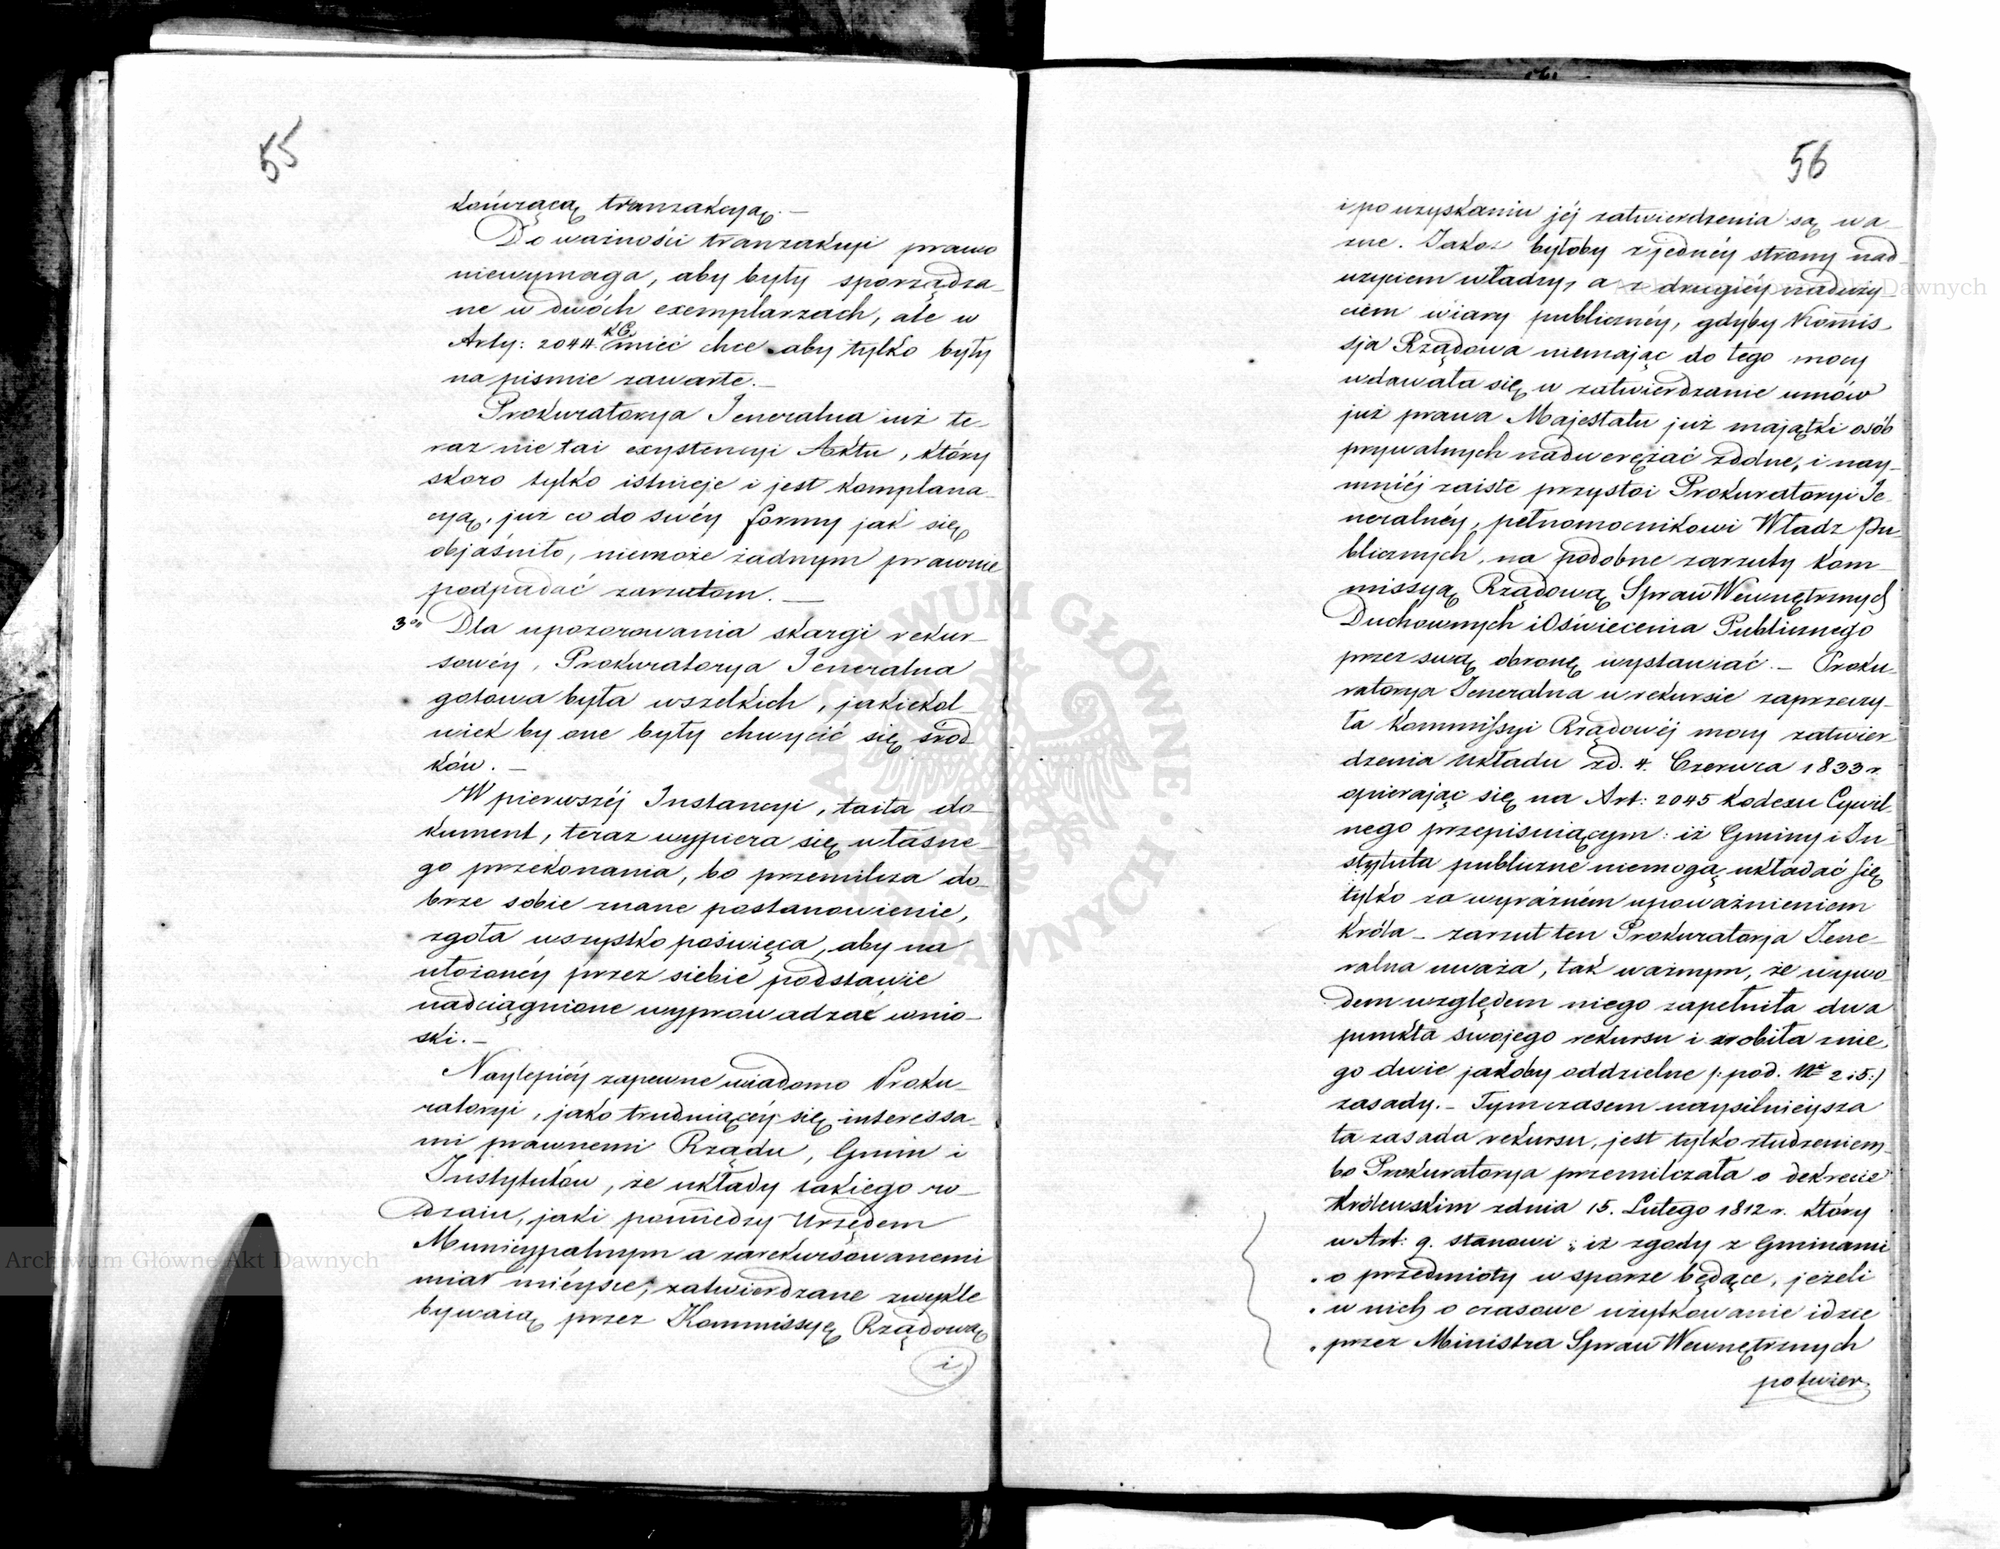 55
kończącą tranzakcyą. —
Do ważności tranzakcyi prawo
niewymaga, aby były sporządza-
ne w dwóch exemplarzach, ale w
Arty: 2044 KC. mieć chce aby tylko były
na piśmie zawarte. —
Prokuratorya Jeneralna już te-
raz nie tai exystencyi Aktu, który
skoro tylko istnieje i jest komplana-
cyą, już co do swéy formy jak się
objaśniło, niemoże żadnym prawnie
podpadać zarzutom. —
3o Dla upozorowania skargi rekur-
sowéy, Prokuratorya Jeneralna
gotowa była wszelkich, jakiekol-
wiek by one były chwycić się środ-
ków. —
W pierwszéj Instancyi, taiła do-
kument, teraz wypiera się własne-
go przekonania, bo przemilcza do-
brze sobie znane postanowienie,
zgoła wszystko poświęca, aby na
ułożonéy przez siebie podstawie
nadciągnione wyprowadzać wnio-
ski. —
Naylepiéy zapewne wiadomo Proku-
ratoryi, jako trudniącéy się interessa-
mi prawnemi Rządu, Gmin i
Instytutów, że układy takiego ro-
dzaiu, jaki pomiedzy Urzędem
Municypalnym a zarekursowanemi
miał miéysce, zatwierdzane zwykle
bywaią przez Kommissyę Rządową
i
56
i po uzyskaniu jéj zatwierdzenia są wa-
żne. Jakoż byłoby z jednéy strony nad-
użyciem władzy, a z drugiéy naduży-
ciem wiary publicznéy, gdyby Komis-
sja Rządowa niemając do tego mocy
wdawała się w zatwierdzanie umów
już prawa Majestatu już majątki osób
prywatnych nadwerężać zdolne, i nay-
mniéj zaiste przystoi Prokuratoryi Je-
neralnéy, pełnomocnikowi Władz Pu-
blicznych, na podobne zarzuty Kom-
missyą Rządową Spraw Wewnętrznych
Duchownych i Oświecenia Publicznego
przez swą obronę wystawiać. — Proku-
ratorya Jeneralna w rekursie zaprzeczy-
ła Kommissyi Rządowéj mocy zatwier
dzenia układu z d. 4. Czerwca 1833 r.
opierając się na Art: 2045 kodexu Cywil-
nego przepisuiącym: iż Gminy i In-
stytuta publiczne niemogą układać się
tylko za wyraźném upoważnieniem
Króla — zarzut ten Prokuratorja Jene-
ralna uważa, tak ważnym, że wywo-
dem względem niego zapełniła dwa
punkta swojego rekursu i zrobiła z nie-
go dwie jakoby oddzielne /: pod. Nr 2 i 5:/
zasady. — Tymczasem naysilnieysza
ta zasada rekursu, jest tylko złudzeniem-
bo Prokuratorya przemilczała o dekrecie
Królewskim z dnia 15. Lutego 1812 r. który
w Art: 9. stanowi „iż zgody z Gminami
„o przedmioty w sporze będące, jeżeli
„w nich o czasowe użytkowanie idzie
„przez Ministra Spraw Wewnętrznych
potwier.
Archiwum Główne Akt Dawnych